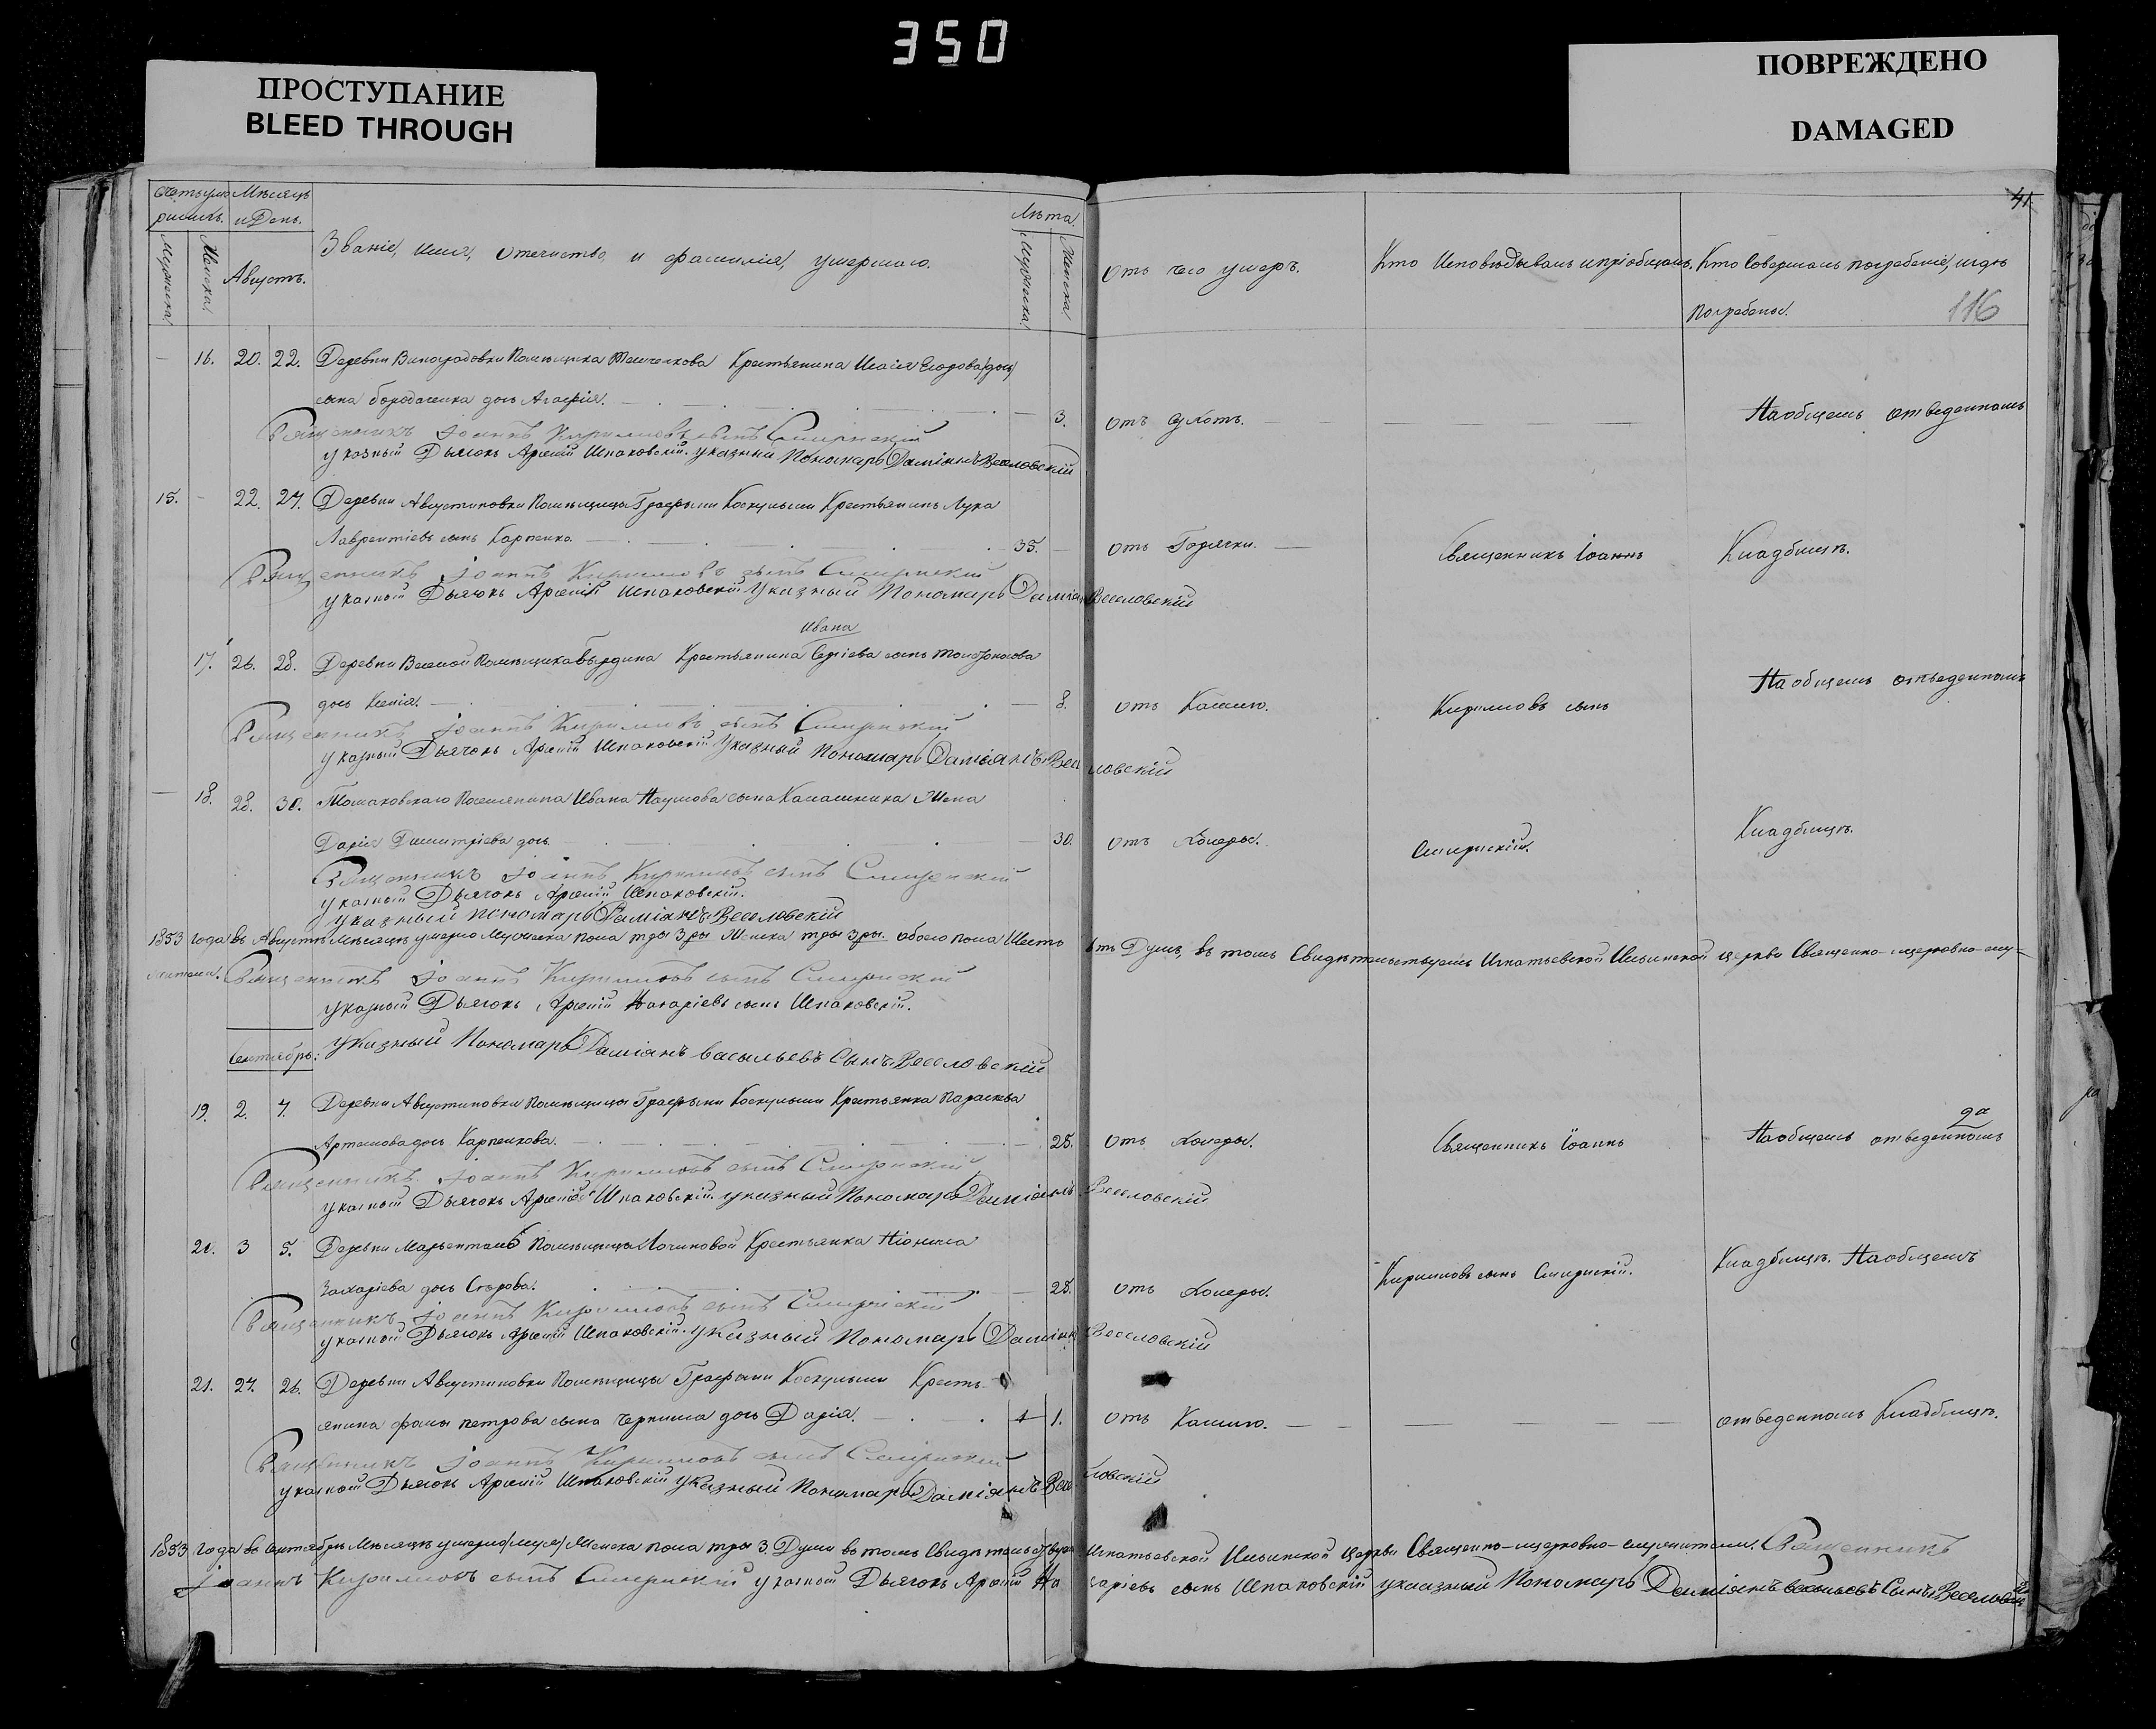 350
ПРОСТУПАНИЕ
BLEED THROUGH
ПОВРЕЖДЕНО
DAMAGED
41
116
Мѣсяцъ
и День.
Августъ.
Мужеска
Женска
Званіе, имя, отечество, и фамилія, умершаго.
Лѣта
Мужеска
Женска
Отъ чего умеръ.
Кто Исповѣдывалъ и пріобщалъ.
Кто Совершалъ погребеніе, и гдѣ
погребены.
16. 20. 22. Деревни Виноградовки Помѣщика Крестьянина Исаія
сына дочь Агафія. 3. Отъ На общемъ отведенномъ
Священникъ Іоаннъ Кирилловъ сынъ Смирнскій
указный Дьячокъ Арсеній Шпаковскій. указный Пономарь Даміанъ Веселовскій
15. 22. 24. Деревни Августиновки Помѣщицы Графыни Крестьянинъ Лука
Лаврентіевъ сынъ Карпенко. 35. Отъ Горячки. Священникъ Іоаннъ Кладбищѣ.
Священникъ Іоаннъ Кирилловъ сынъ Смирнскій
указный Дьячокъ Арсеній Шпаковскій Указный Пономарь Даміанъ Веселовскій
Ивана
17. 26. 28. Деревни Веселой Помѣщика Крестьянина Сергіева сына
дочь Ксенія. 8. Отъ Кашлю. Кирилловъ сынъ На общемъ отведенномъ
Священникъ Іоаннъ Кирилловъ сынъ Смирнскій
указный Дьячокъ Арсеній Шпаковскій Указный Пономарь Даміянъ Веселовскій
18. 28. 30. Томаковскаго Поселянина Ивана Наумова сына Калашника Жена
Дарія Димитріева дочь 30. Отъ Холеры. Смирнскій. Кладбищѣ.
Священникъ Іоаннъ Кирилловъ сынъ Смирнскій
указный Дьячокъ Арсеній Шпаковскій.
указный пономарь Даміянъ Веселовскій
1853 года въ Августѣ Мѣсяцѣ умерло Мужеска пола три 3ри Женска три 3ри. обоего пола Шесть Душъ, въ томъ Свидѣтельствуемъ Игнатьевской Ильинской церкви Священно-церковно-слу-
жители. Священникъ Іоаннъ Кирилловъ сынъ Смирнскій
указный Дьячокъ Арсеній Назаріевъ сынъ Шпаковскій.
Сентябрь:
указный Пономарь Даміянъ васильевъ Сынъ Веселовскій
19. 2. 4. Деревни Августиновки Помѣщицы Графыни Крестьянка Параскева
Артемова дочь Карпенкова. 25. Отъ Холеры. Священникъ Іоаннъ На общемъ отведенномъ
Священникъ Іоаннъ Кирилловъ сынъ Смирнскій
указный Дьячокъ Арсеній Шпаковскій указный Пономарь Даміянъ Веселовскій
20. 3 5. Деревни Помѣщицы Крестьянка
Захаріева дочь 28. Отъ Холеры. Кирилловъ сынъ Смирнскій. Кладбищѣ. На общемъ
Священникъ Іоаннъ Кирилловъ сынъ Смирнскій
указный Дьячокъ Арсеній Шпаковскій. указный Пономарь Даміянъ Веселовскій
21. 24. 26. Деревни Августиновки Помѣщицы Графыни Кресть-
янина фомы петрова сына дочь Дарія. 1. Отъ Кашлю. отведенномъ Кладбищѣ.
Священникъ Іоаннъ Кирилловъ сынъ Смирнскій
указный Дьячокъ Арсеній Шпаковскій указный Пономарь Даміянъ Веселовскій
1853 года въ Сентябрѣ Мѣсяцѣ умерло Женска пола три 3. Души въ томъ Свидѣтельствуемъ Игнатьевской Ильинской Церкви Священно-церковно-служители. Священникъ
Іоаннъ Кирилловъ сынъ Смирнскій указный Дьячокъ Арсеній Назаріевъ сынъ Шпаковскій указный Пономарь Даміянъ васильевъ Сынъ Веселовскій